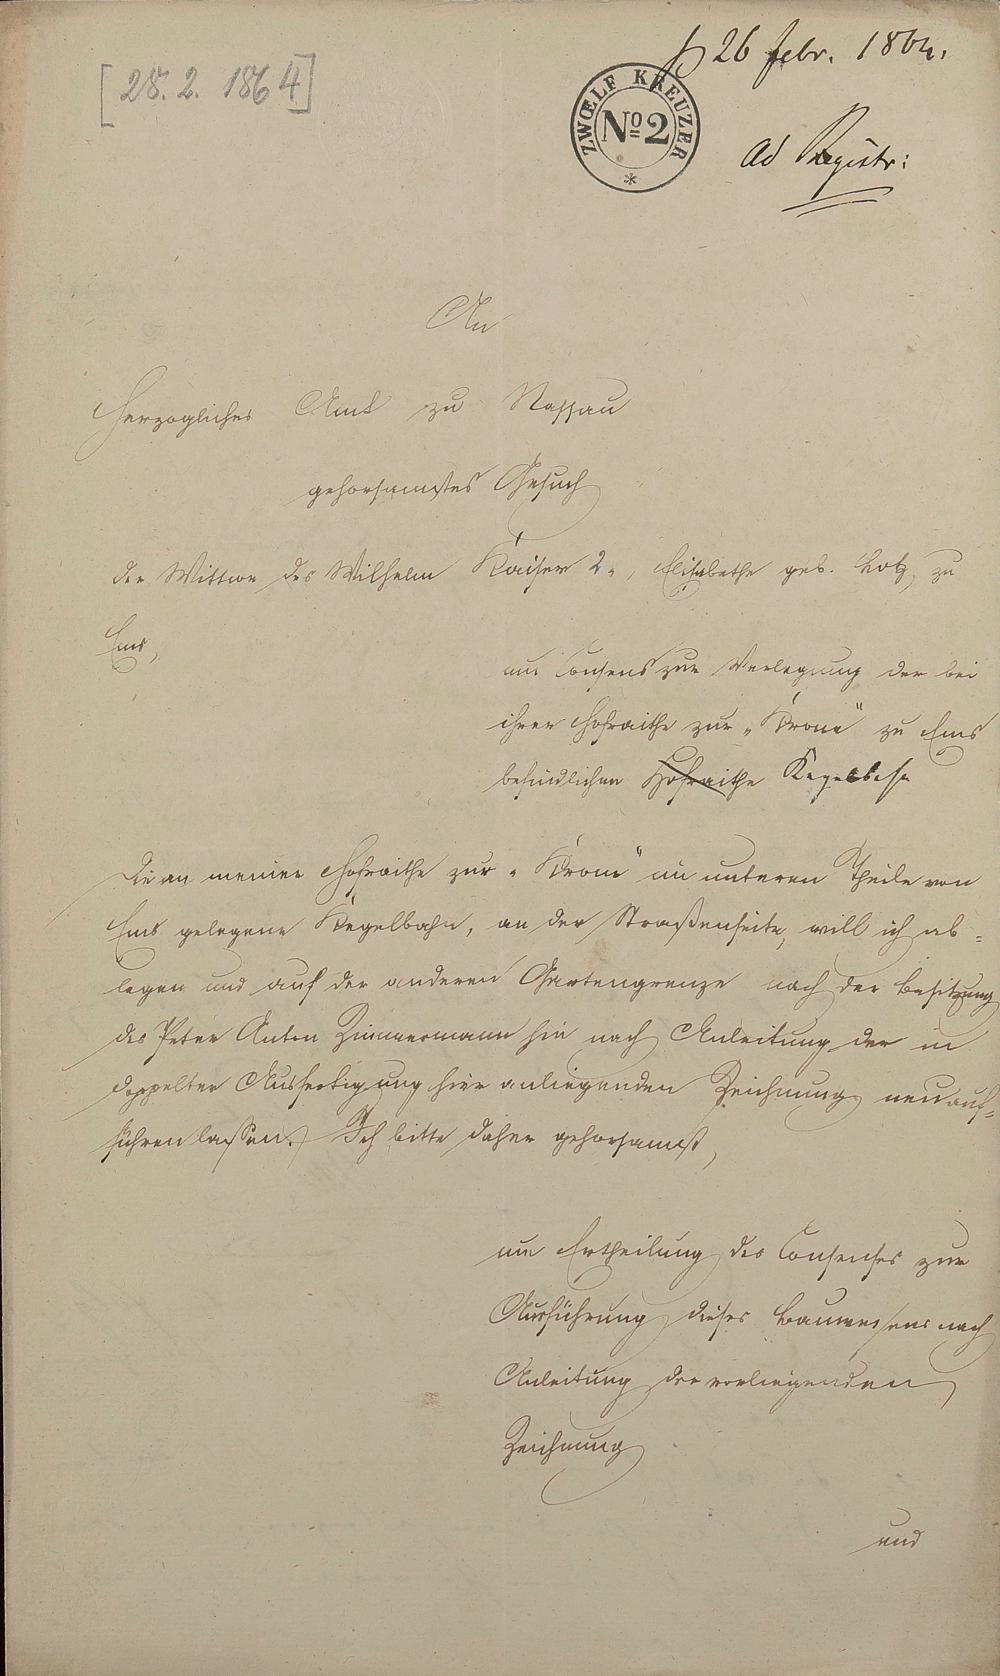 [28. 2. 1864]
26 Febr. 1864.
ZWŒLF KREUZER
No 2
ad Registr:
An
Herzogliches Amt zu Nassau
gehorsamstes Gesuch
der Wittwe des Wilhelm Kaiser 2r, Elisabethe geb. Lotz, zu
Ems,
um Consens zur Verlegung der bei
ihrer Hofraithe zur „Krone“ zu Ems
befindlichen Hofraithe Kegelbahn
Die an meiner Hofraithe zur „Krone“ im unteren Theile von
Ems gelegene Kegelbahn, an der Straßenseite, will ich ab=
legen und auf der anderen Gartengrenze nach der Besitzung
des Peter Anton Zimmermann hin nach Anleitung der in
doppelter Ausfertigung hier anliegenden Zeichnung neu auf=
führen lassen. Ich bitte daher gehorsamst,
um Ertheilung des Consenses zur
Ausführung dieses Bauwesens nach
Anleitung der vorliegenden
Zeichnung
und